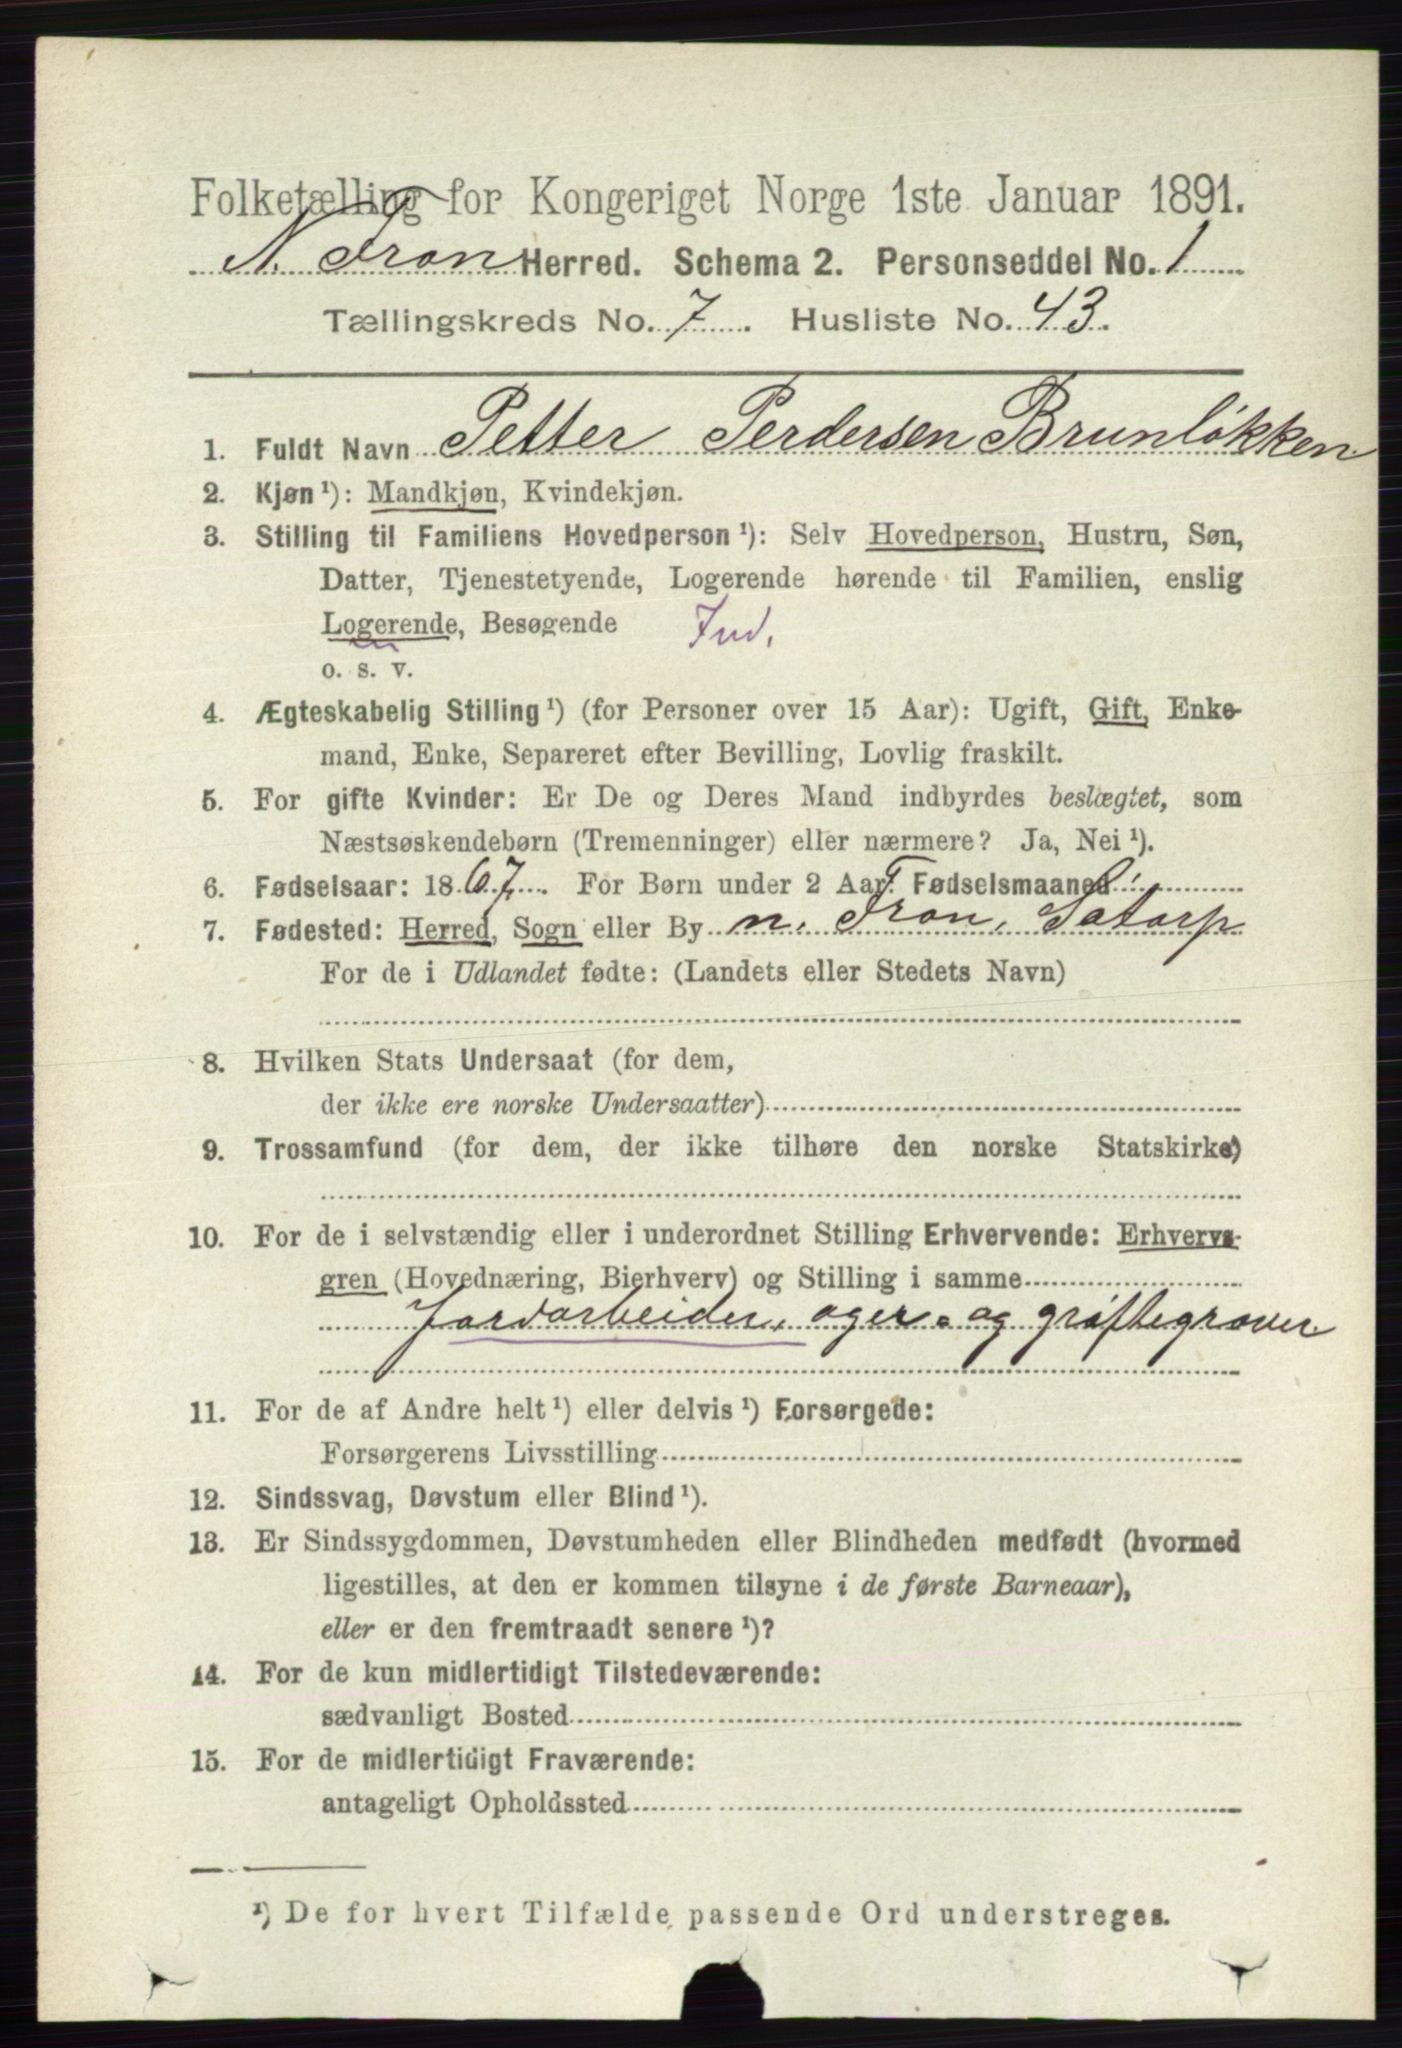 Folketælling for Kongeriget Norge 1ste Januar 1891.
N. Fron Herred. Schema 2. Personseddel No. 1
Tællingskreds No. 7. Husliste No. 43.
1. Fuldt Navn Petter Perdersen Brunløkken
2. Kjøn¹): Mandkjøn, Kvindekjøn.
3. Stilling til Familiens Hovedperson¹): Selv Hovedperson, Hustru, Søn,
Datter, Tjenestetyende, Logerende hørende til Familien, enslig
Logerende, Besøgende
o. s. v.
4. Ægteskabelig Stilling¹) (for Personer over 15 Aar): Ugift, Gift, Enke-
mand, Enke, Separeret efter Bevilling, Lovlig fraskilt.
5. For gifte Kvinder: Er De og Deres Mand indbyrdes beslægtet, som
Næstsøskendebørn (Tremenninger) eller nærmere? Ja, Nei¹).
6. Fødselsaar: 1867. For Børn under 2 Aar: Fødselsmaaned:
7. Fødested: Herred, Sogn eller By n. Fron, Satorp
For de i Udlandet fødte: (Landets eller Stedets Navn)
8. Hvilken Stats Undersaat (for dem,
der ikke ere norske Undersaatter)
9. Trossamfund (for dem, der ikke tilhøre den norske Statskirke)
10. For de i selvstændig eller i underordnet Stilling Erhvervende: Erhvervs-
gren (Hovednæring, Bierhverv) og Stilling i samme
Jordarbeider, ager- og grøftegraver.
11. For de af Andre helt¹) eller delvis¹) Forsørgede:
Forsørgerens Livsstilling
12. Sindssvag, Døvstum eller Blind¹).
13. Er Sindssygdommen, Døvstumheden eller Blindheden medfødt (hvormed
ligestilles, at den er kommen tilsyne i de første Barneaar),
eller er den fremtraadt senere¹)?
14. For de kun midlertidigt Tilstedeværende:
sædvanligt Bosted
15. For de midlertidigt Fraværende:
antageligt Opholdssted
¹) De for hvert Tilfælde passende Ord understreges.